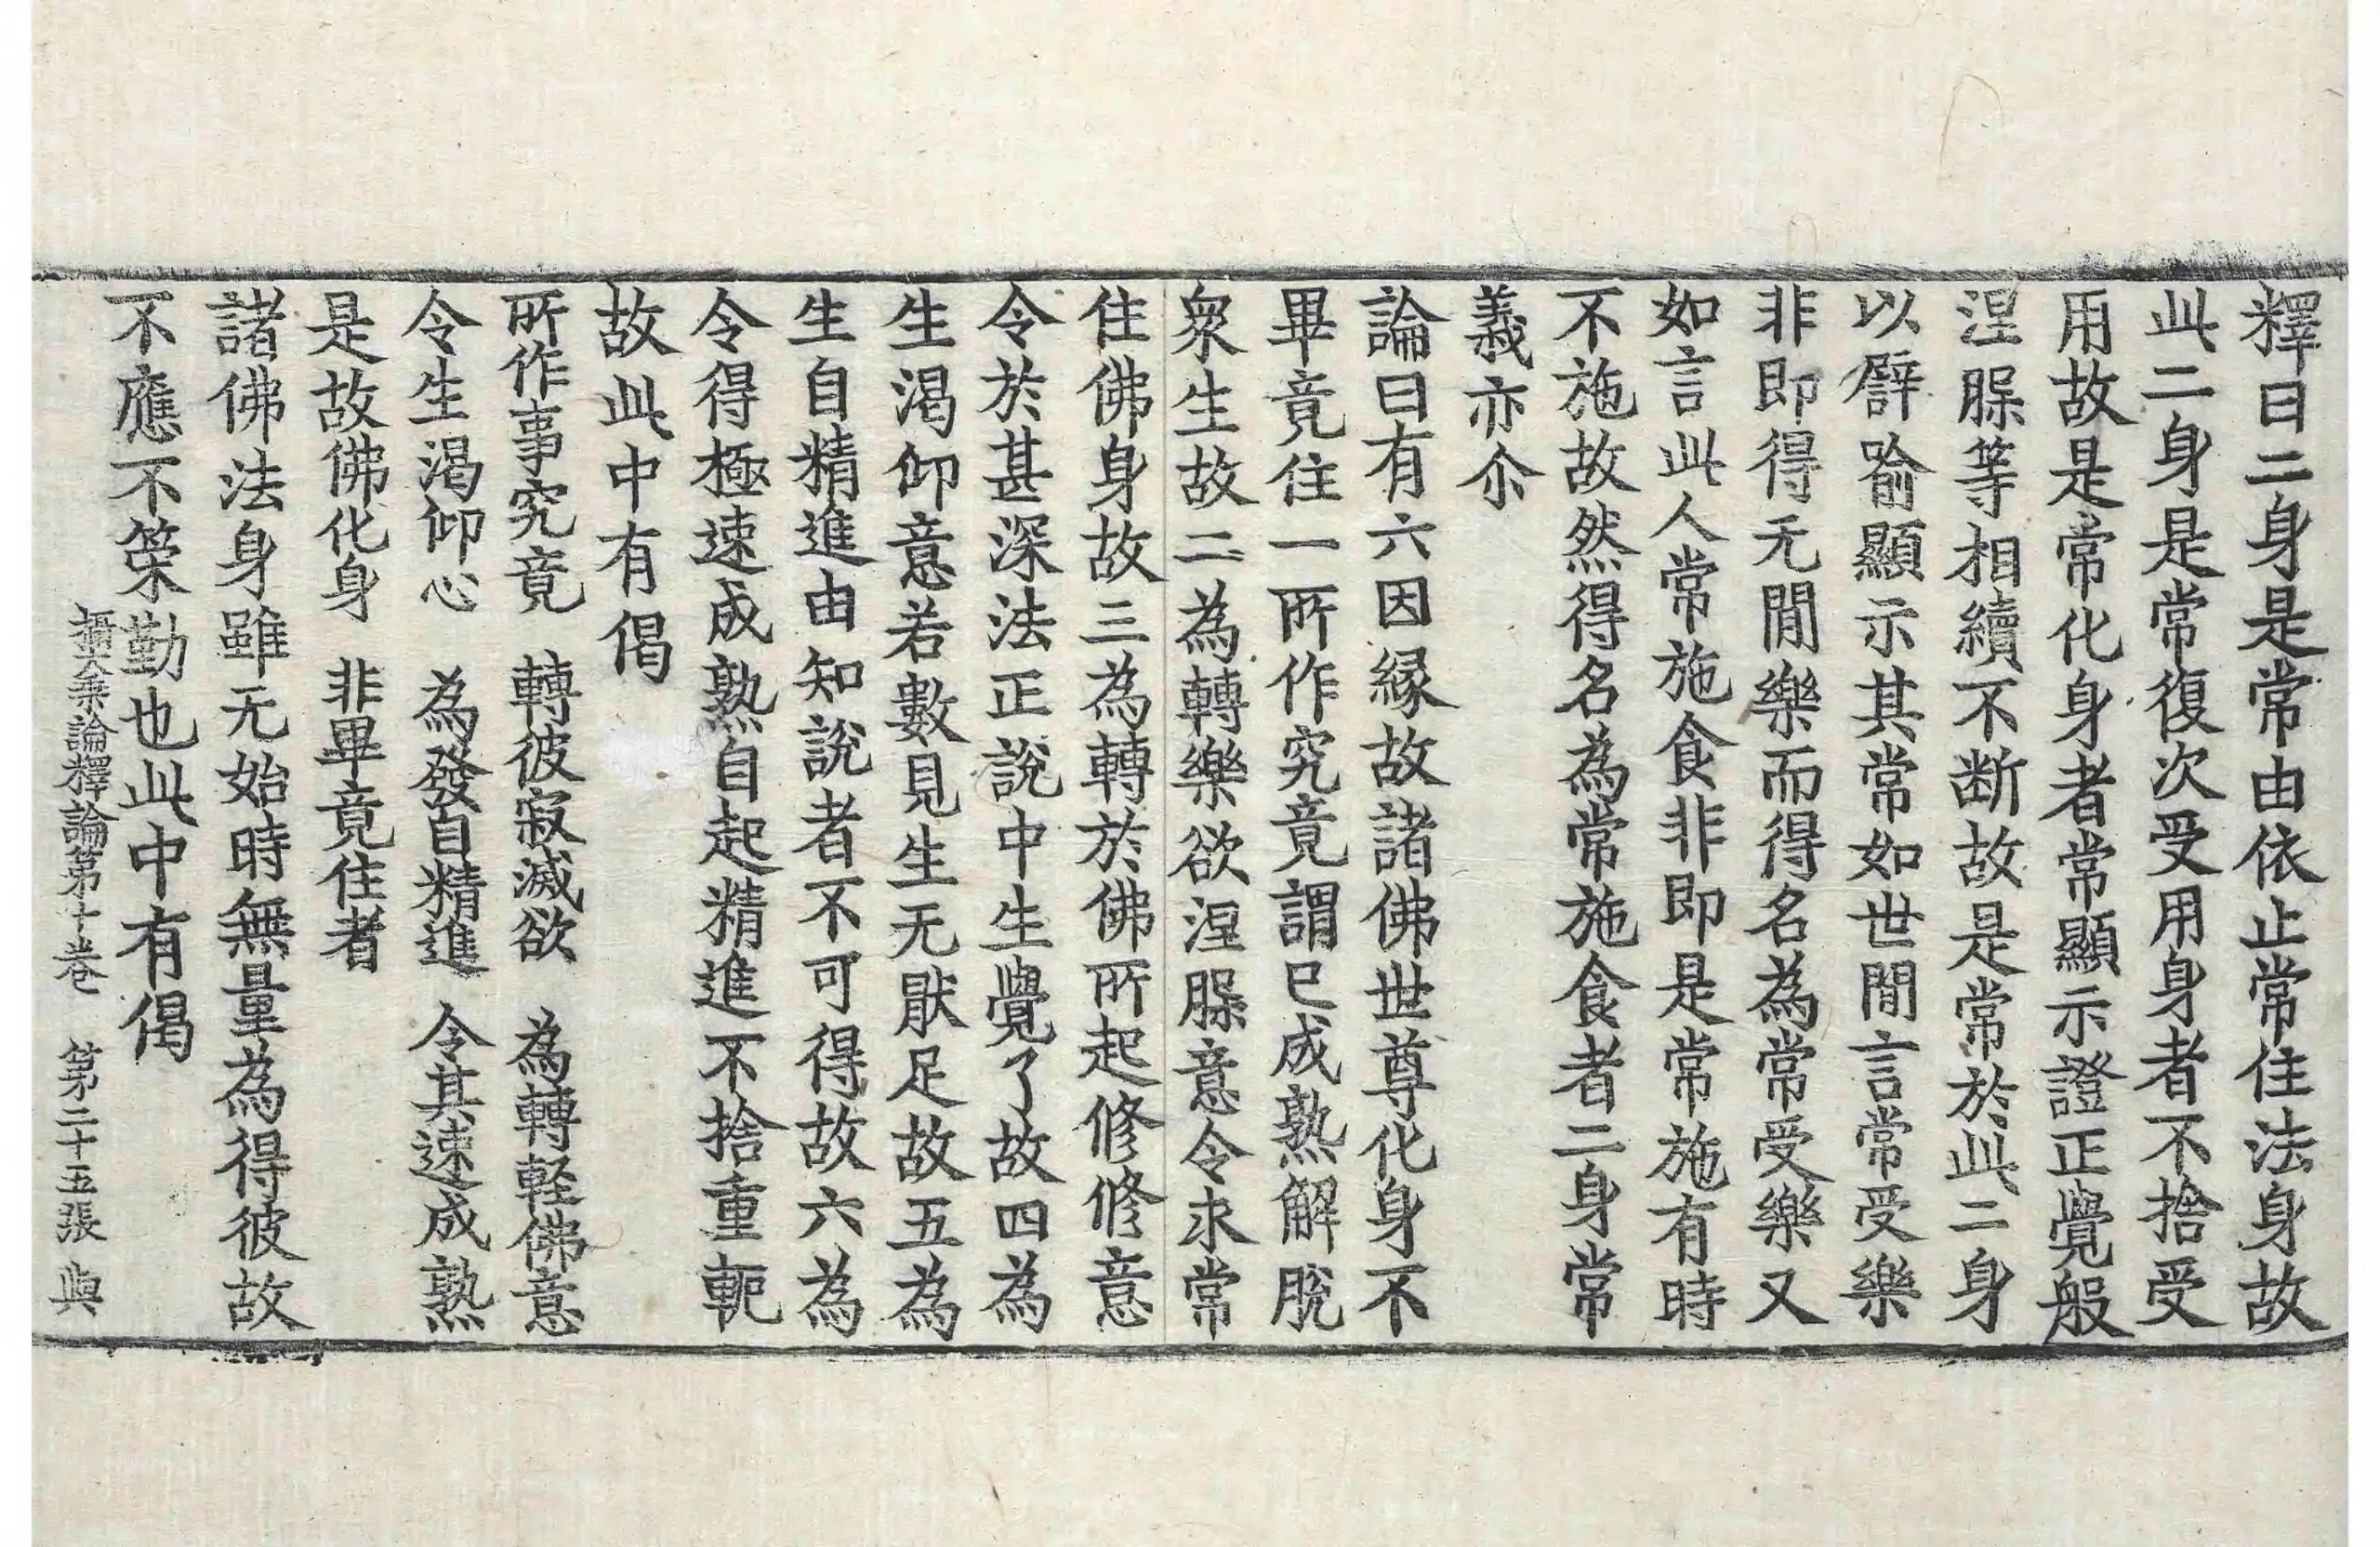 釋曰二身是常由依止常住法身故
此二身是常復次受用身者不捨受
用故是常化身者常顯示證正覺般
涅槃等相續不断故是常於此二身
以譬喻顯示其常如世間言常受樂
非即得无間樂而得名為常受樂又
如言此人常施食非即是常施有時
不施故然得名為常施食者二身常
義亦尒
論曰有六因縁故諸佛世尊化身不
畢竟住一所作究竟謂已成熟解脫
衆生故二為轉樂欲涅槃意令求常
住佛身故三為轉於佛所起修修意
令於甚深法正說中生覺了故四為
生渴仰意若數見生无厭足故五為
生自精進由知說者不可得故六為
令得極速成熟自起精進不捨重軛
故此中有偈
所作事究竟　轉彼寂滅欲　為轉軽佛意
令生渴仰心　為發自精進　令其速成熟
是故佛化身　非畢竟住者
諸佛法身雖无始時無量為得彼故
不應不䇿勤也此中有偈
攝大乗論釋論第十卷　第二十五張　與